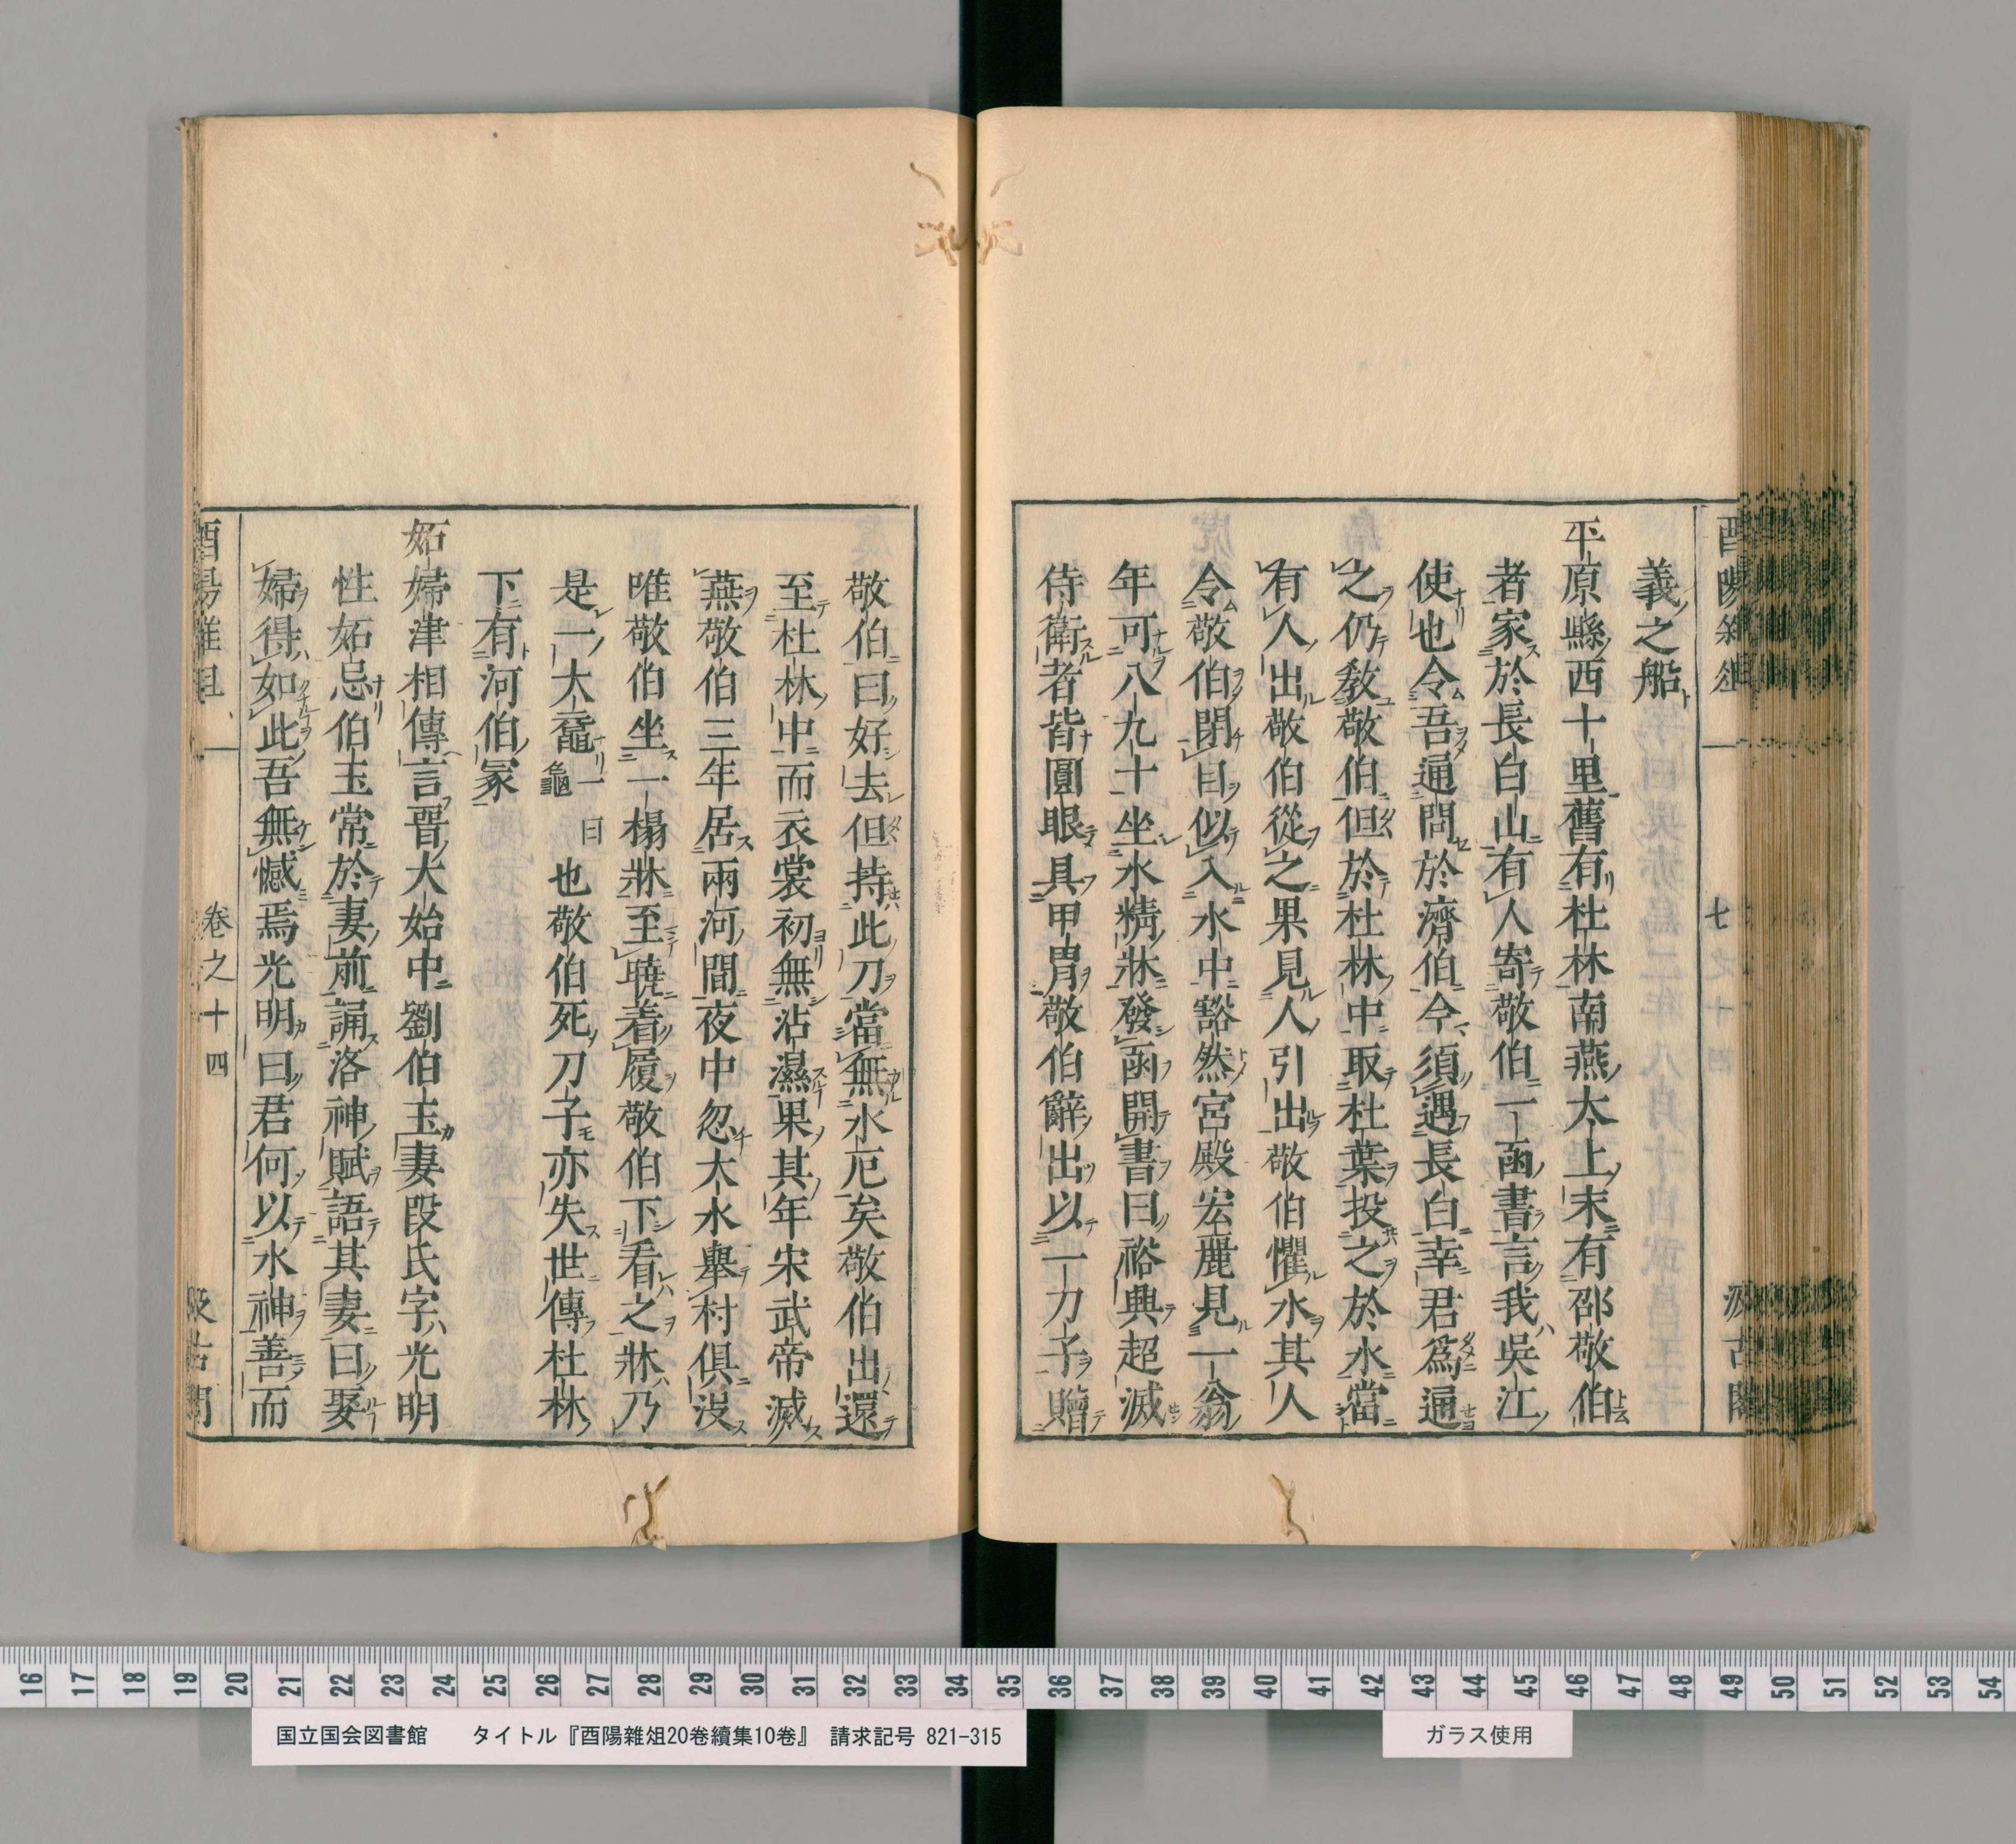 義之船
平原縣西十里舊有杜林南燕太上末有邵敬伯
者家於長白山有人寄敬伯一函書言我吳江
使也令吾通問於濟伯今須遇長白幸君爲通
之仍教敬伯但於杜林中取杜葉投之於水當
有人出敬伯從之果見人引出敬伯懼水其人
令敬伯閉目似入水中豁然宮殿宏麗見一翁
年可八九十坐水精牀發函開書曰裕興超滅
侍衛者皆圓眼具甲冑敬伯辭出以一刀子贈
敬伯曰好去但持此刀當無水厄矣敬伯出還
至杜林中而衣裳初無沾濕果其年宋武帝滅
燕敬伯三年居兩河間夜中忽大水舉村俱沒
唯敬伯坐一榻牀至曉着履敬伯下看之牀乃
是一大黿一曰龜也敬伯死刀子亦失世傳杜林
下有河伯冢
妬婦津相傳言晉大始中劉伯玉妻段氏字光明
性妬忌伯玉常於妻前誦洛神賦語其妻曰娶
婦得如此吾無憾焉光明曰君何以水神善而
卷之十四
国立国会図書館 タイトル『酉陽雜俎20巻續集10巻』 請求記号 821-315
ガラス使用
16 17 18 19 20 21 22 23 24 25 26 27 28 29 30 31 32 33 34 35 36 37 38 39 40 41 42 43 44 45 46 47 48 49 50 51 52 53 54